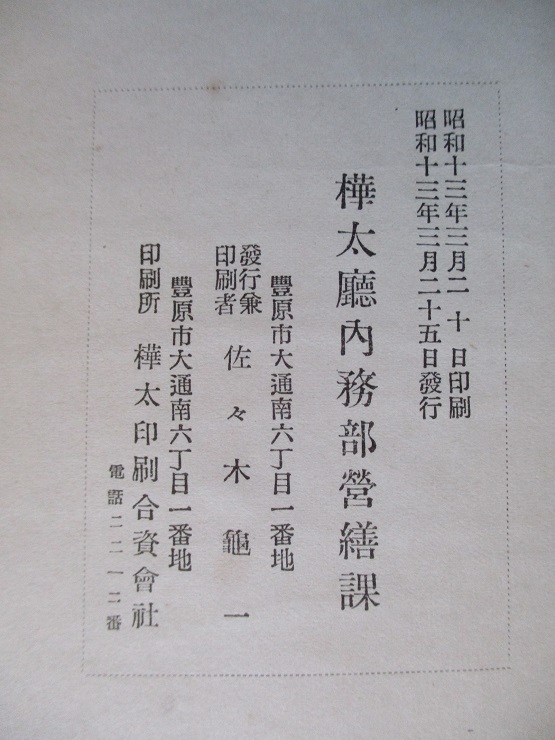 昭和十三年三月二十日印刷
昭和十三年三月二十五日發行
樺太廳內務部營繕課
豐原市大通南六丁目一番地
發行兼
印刷者 佐々木龜一
豐原市大通南六丁目一番地
印刷所 樺太印刷合資會社
電話二二一二番